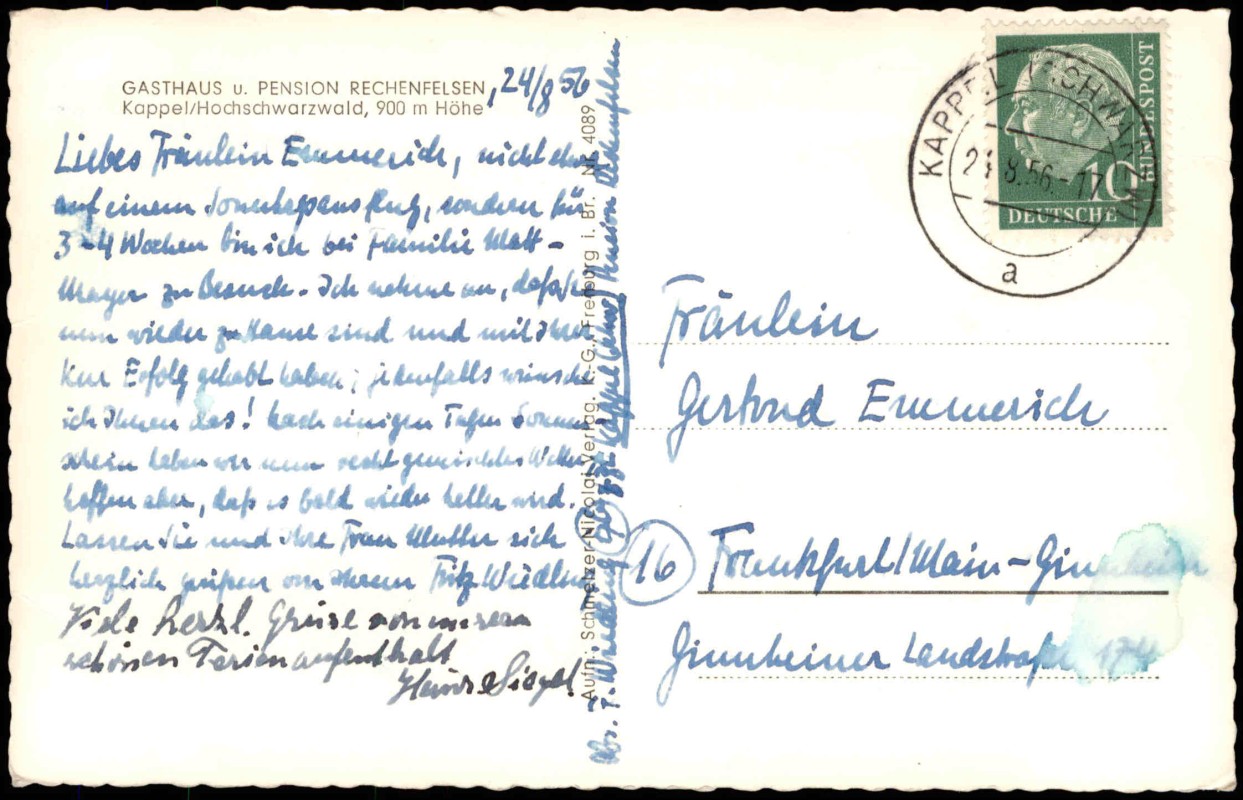 GASTHAUS u. PENSION RECHENFELSEN
Kappel/Hochschwarzwald, 900 m Höhe
, 24/8 56
Liebes Fräulein Emmerich, nicht etwa
auf einem Sonntagsausflug, sondern für
3-4 Wochen bin ich bei Familie Matt-
Mayer zu Besuch. Ich nehme an, daß Sie
nun wieder zuhause sind und mit Ihrer
Kur Erfolg gehabt haben; jedenfalls wünsche
ich Ihnen das! Nach einigen Tagen Sonnen
schein haben wir nun recht gemischtes Wetter
hoffen aber, daß es bald wieder heller wird.
Lassen Sie und Ihre Frau Mutter sich
herzlich grüßen von Ihrem Fritz Wieding
Viele herzl. Grüsse von unserm
schönen Ferienaufenthalt
Siegel
Aufn.: Schmelzer-Nicolai-Verlag. K.G., Freiburg i. Br. Nr. 4089
Abs. F. Wieding Kappel Pension Rechenfelsen
KAPPEL (SCHWARZW)
24.8.56.-17
a
10
DEUTSCHE
BUNDESPOST
Fräulein
Gertrud Emmerich
16 Frankfurt/Main-Ginnheim
Ginnheimer Landstraße 174